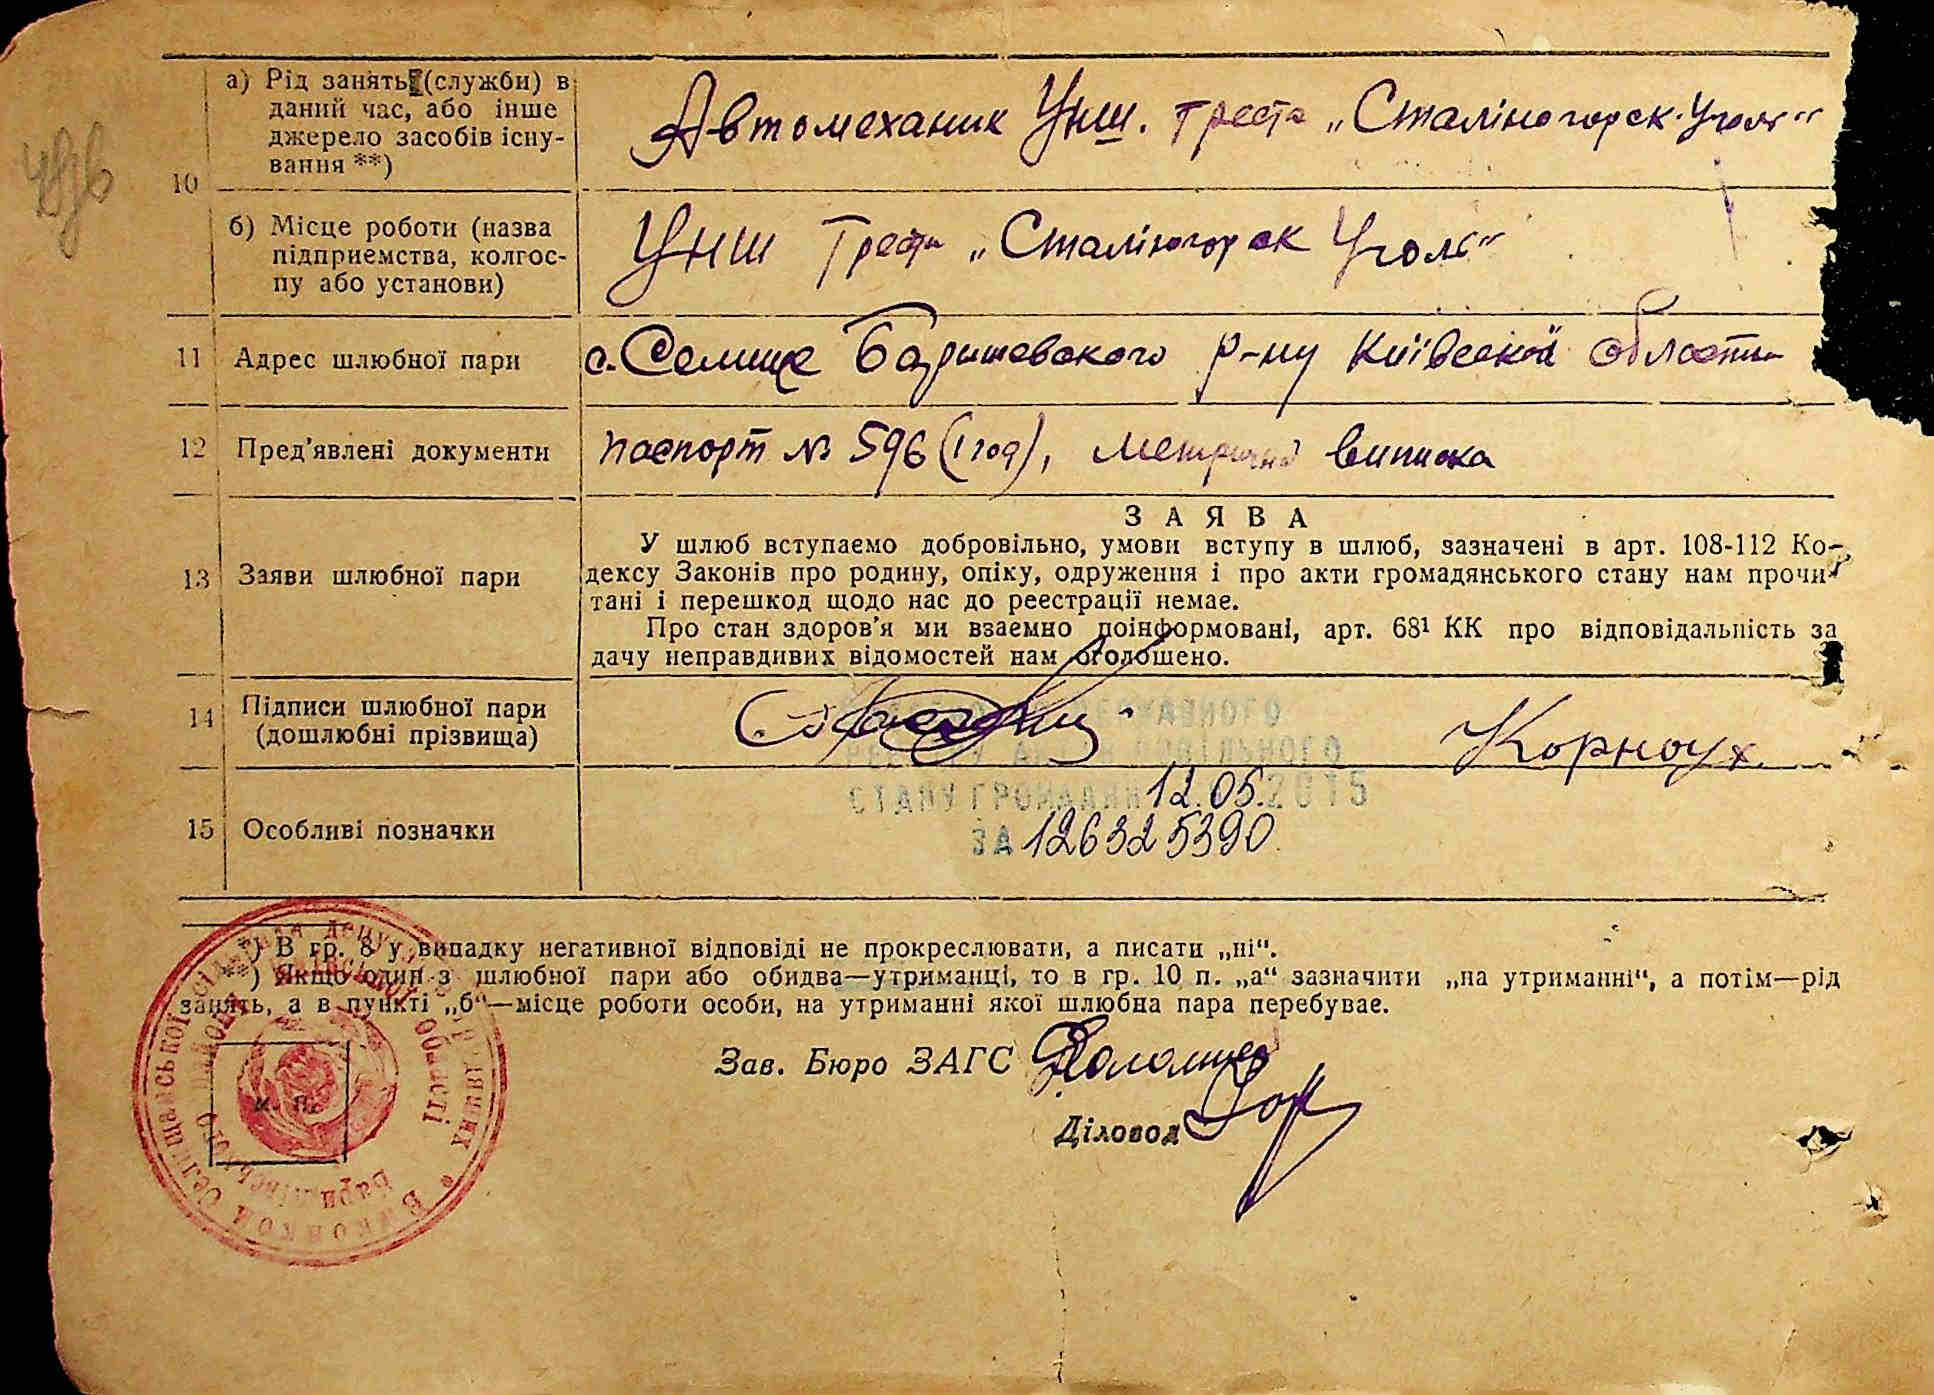 10
а) Рід занять (служби) в
даний час, або інше
джерело засобів існу-
вання **)
Автомеханик Унш. треста „Сталіногорск-Уголь“
б) Місце роботи (назва
підприємства, колгос-
пу або установи)
Унш Треста „Сталіногорск Уголь“
11 Адрес шлюбної пари
с. Селище Баришевского р-ну Київской области
12 Пред'явлені документи
паспорт № 596 (1 год), Метрична виписка
13 Заяви шлюбної пари
ЗАЯВА
У шлюб вступаємо добровільно, умови вступу в шлюб, зазначені в арт. 108-112 Ко-
дексу Законів про родину, опіку, одруження і про акти громадянського стану нам прочи-
тані і перешкод щодо нас до реєстрації немає.
Про стан здоров'я ми взаємно поінформовані, арт. 68¹ КК про відповідальність за
дачу неправдивих відомостей нам оголошено.
14 Підписи шлюбної пари
(дошлюбні прізвища)
Корноух
СТАНУ ГРОМАДЯН 12.05.2015
ЗА 126325390
15 Особливі позначки
*) В гр. 8 у випадку негативної відповіді не прокреслювати, а писати „ні“.
**) Якщо один з шлюбної пари або обидва—утриманці, то в гр. 10 п. „а“ зазначити „на утриманні“, а потім—рід
занять, а в пункті „б“—місце роботи особи, на утриманні якої шлюбна пара перебуває.
Зав. Бюро ЗАГС
Діловод
М. П.